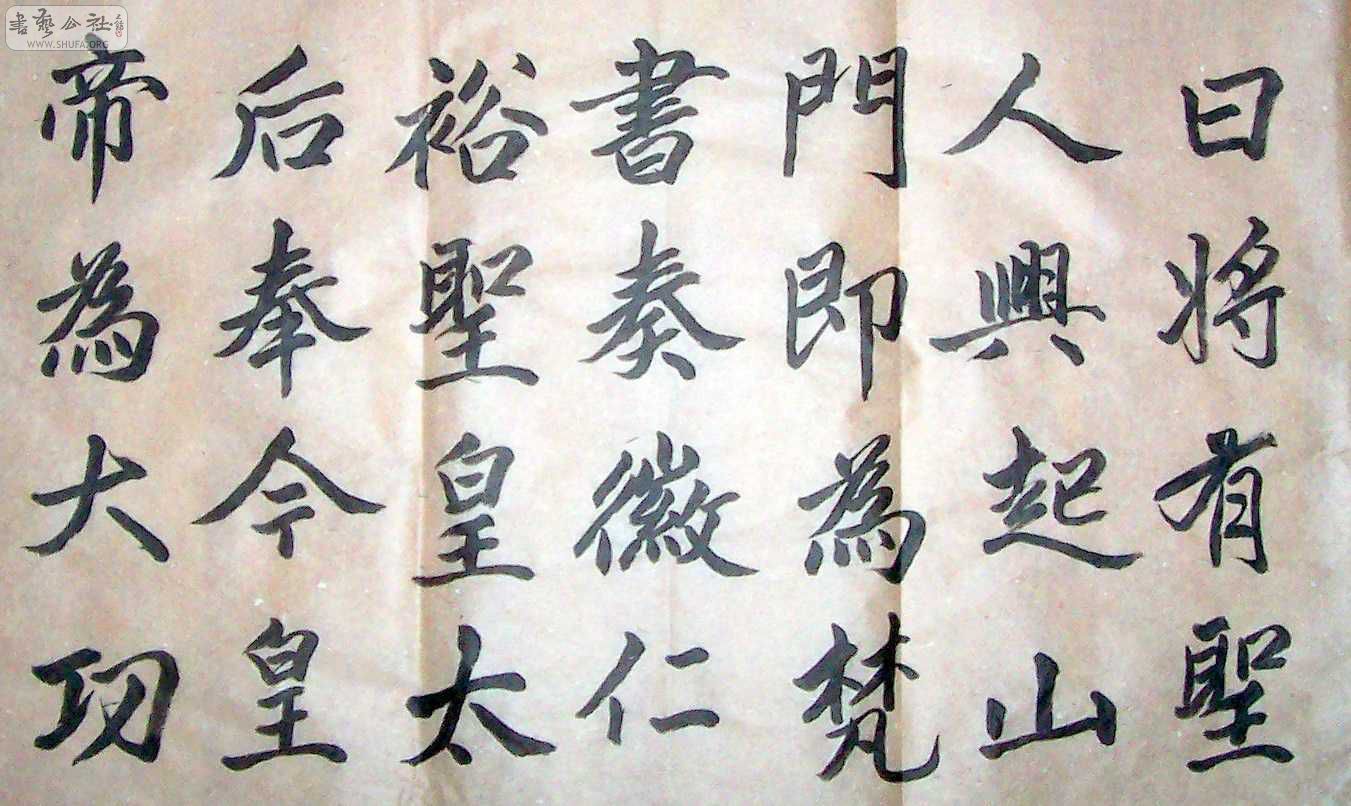 曰将有聖
人興起山
門即為梵
書奏徽仁
裕聖皇太
后奉今皇
帝為大功
書藝公社
WWW.SHUFA.ORG